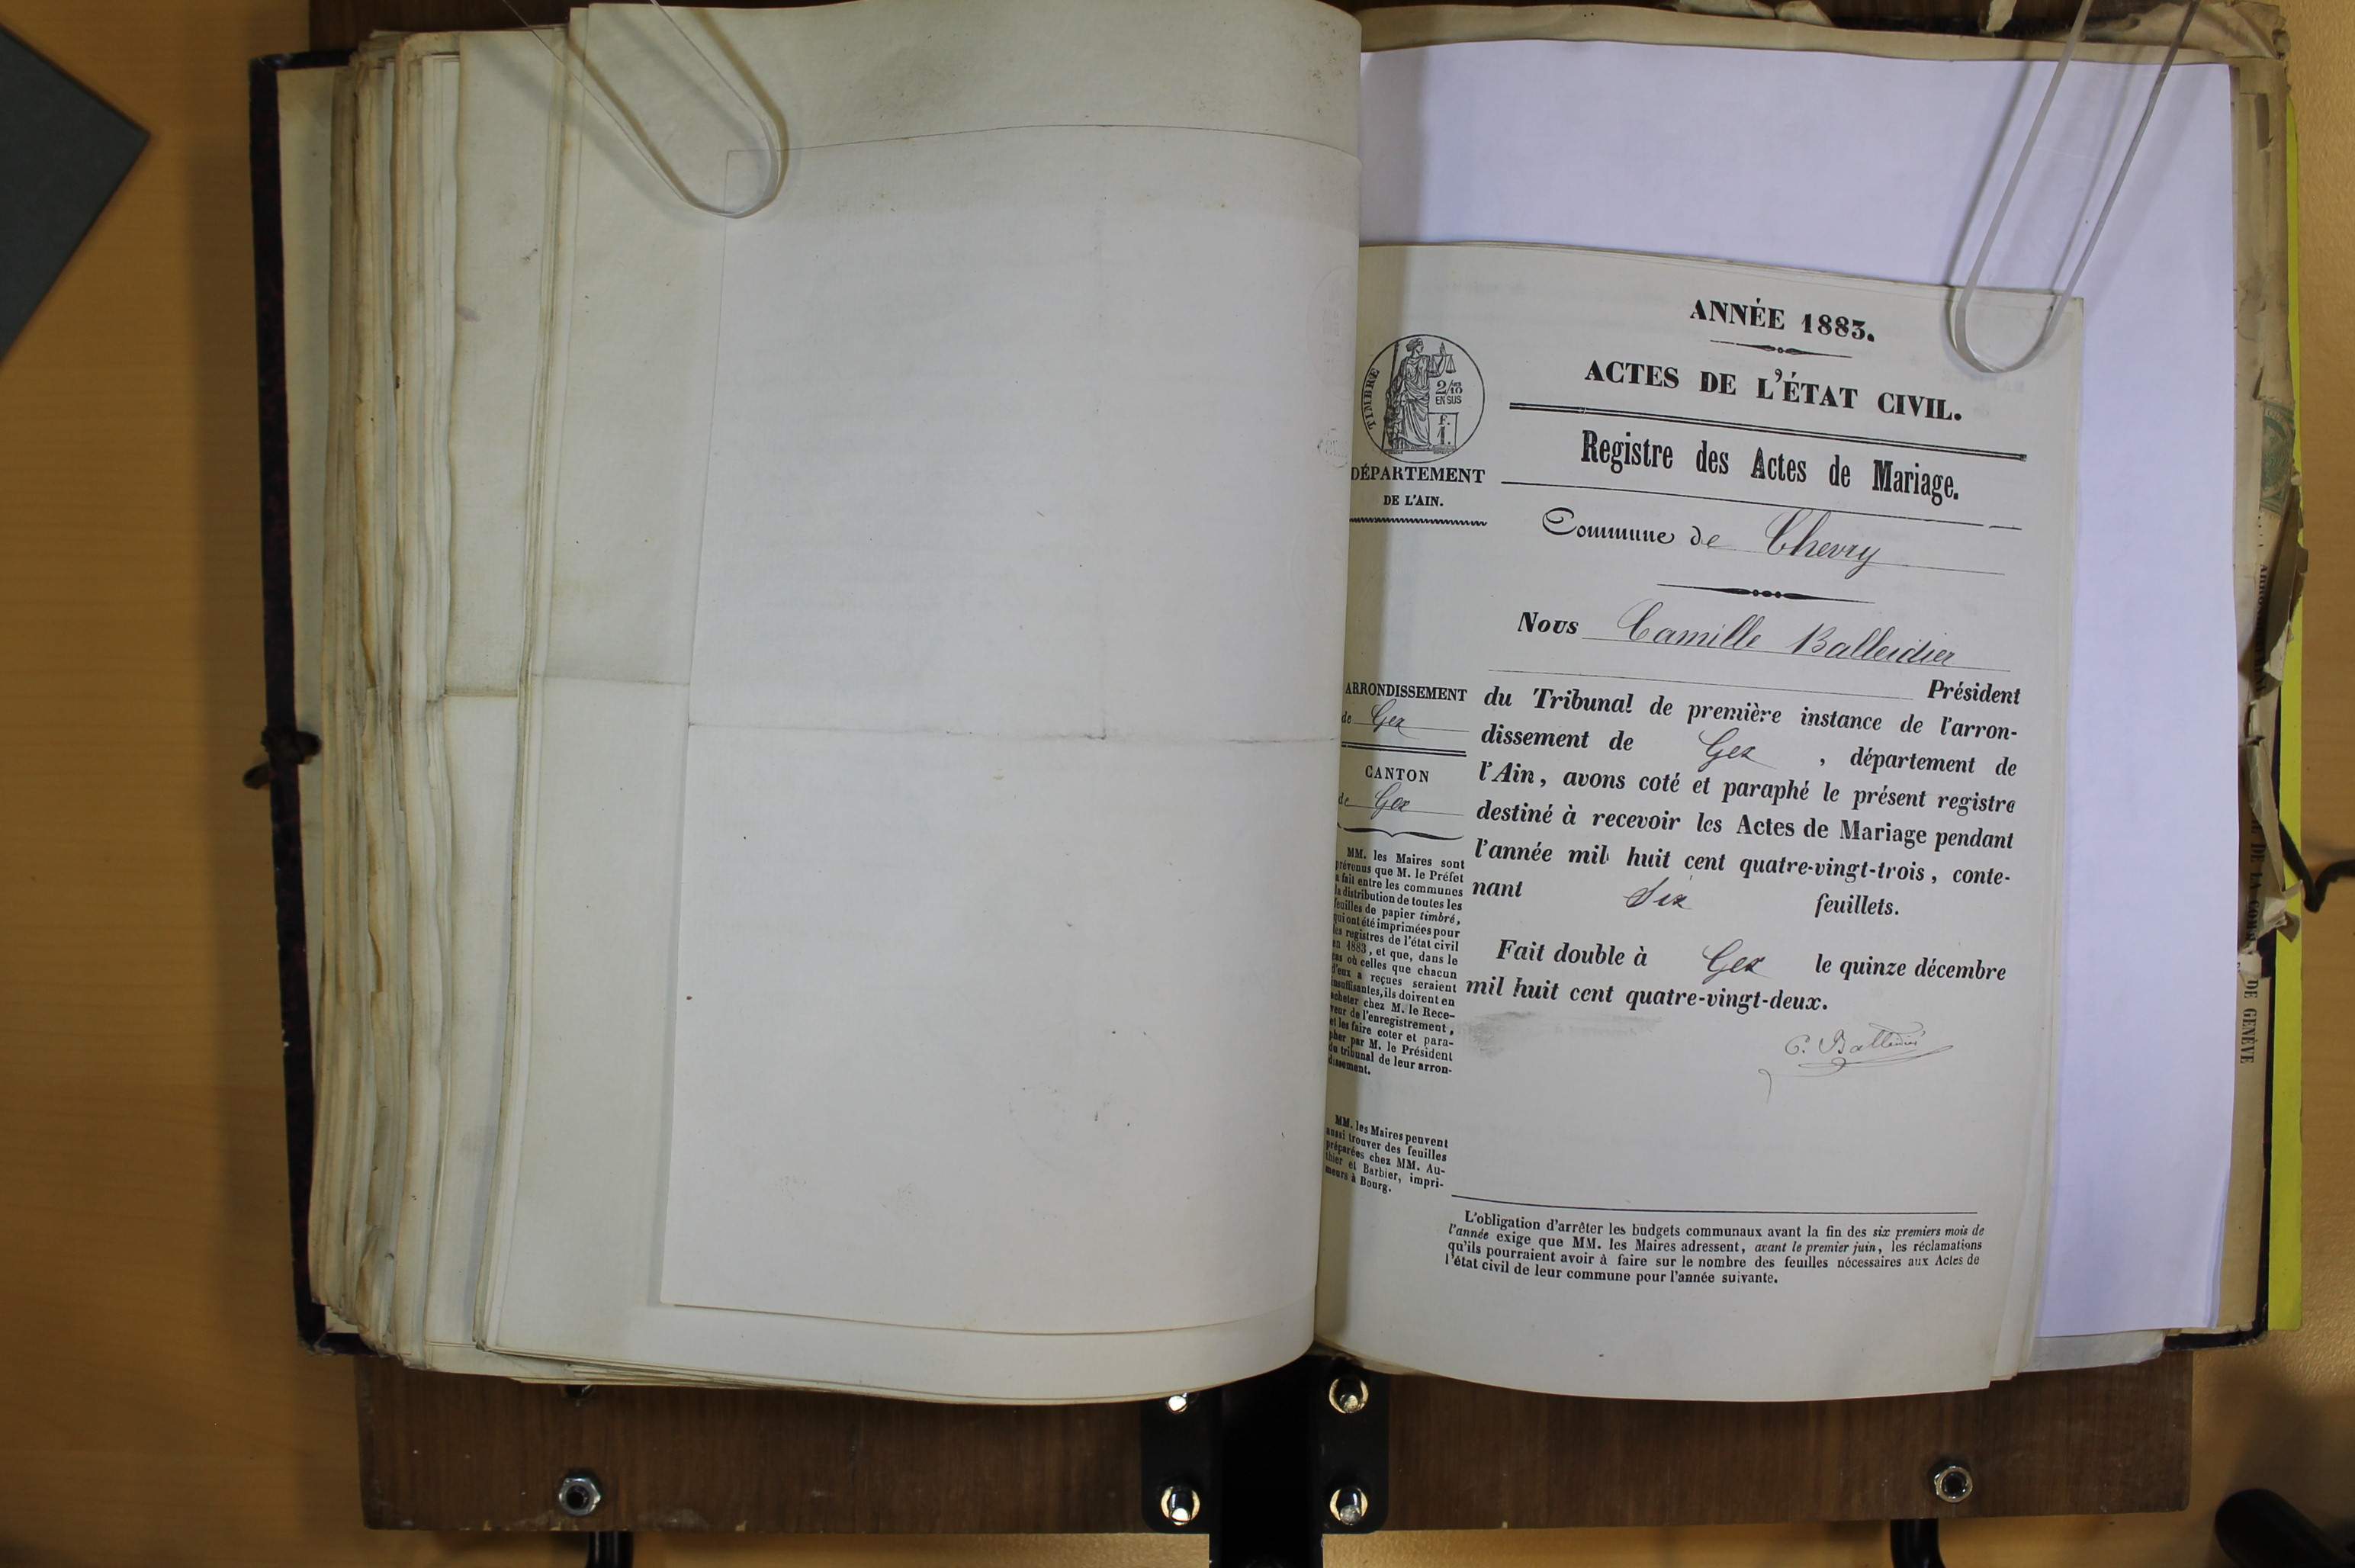 ANNÉE 1883.
ACTES DE L'ÉTAT CIVIL.
Registre des Actes de Mariage.
Commune de Chevry
TIMBRE
2/10
EN SUS
f.
1.
DÉPARTEMENT
DE L'AIN.
ARRONDISSEMENT
de Gex
CANTON
de Gex
MM. les Maires sont
prévenus que M. le Préfet
a fait entre les communes
la distribution de toutes les
feuilles de papier timbré,
qui ont été imprimées pour
les registres de l'état civil
en 1883, et que, dans le
cas où celles que chacun
d'eux a reçues seraient
insuffisantes, ils doivent en
acheter chez M. le Rece-
veur de l'enregistrement,
et les faire coter et para-
pher par M. le Président
du tribunal de leur arron-
dissement.
MM. les Maires peuvent
aussi trouver des feuilles
préparées chez MM. Au-
thier et Barbier, impri-
meurs à Bourg.
Nous Camille Balleidier
Président
du Tribunal de première instance de l'arron-
dissement de Gex , département de
l'Ain, avons coté et paraphé le présent registre
destiné à recevoir les Actes de Mariage pendant
l'année mil huit cent quatre-vingt-trois, conte-
nant Six feuillets.
Fait double à Gex le quinze décembre
mil huit cent quatre-vingt-deux.
C. Balleidier
L'obligation d'arrêter les budgets communaux avant la fin des six premiers mois de
l'année exige que MM. les Maires adressent, avant le premier juin, les réclamations
qu'ils pourraient avoir à faire sur le nombre des feuilles nécessaires aux Actes de
l'état civil de leur commune pour l'année suivante.
DE GENÈVE